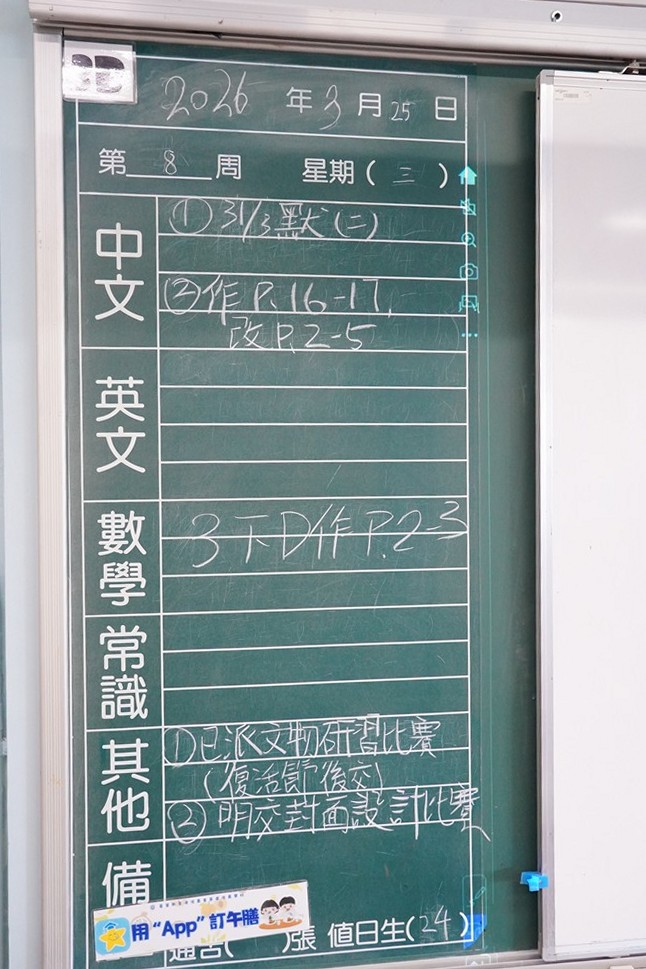 3D
2026 年 3 月 25 日
第 8 周 星期 ( 三 )
中文
① 31/3 默(二)
② 作 P. 16-17,
改 P. 2-5
英文
數學
3下D作 P.2-3
常識
其他
① 已派文物研習比賽
(復活節後交)
② 明交封面設計比賽
備
用“App”訂午膳
通告( )張 值日生(24)